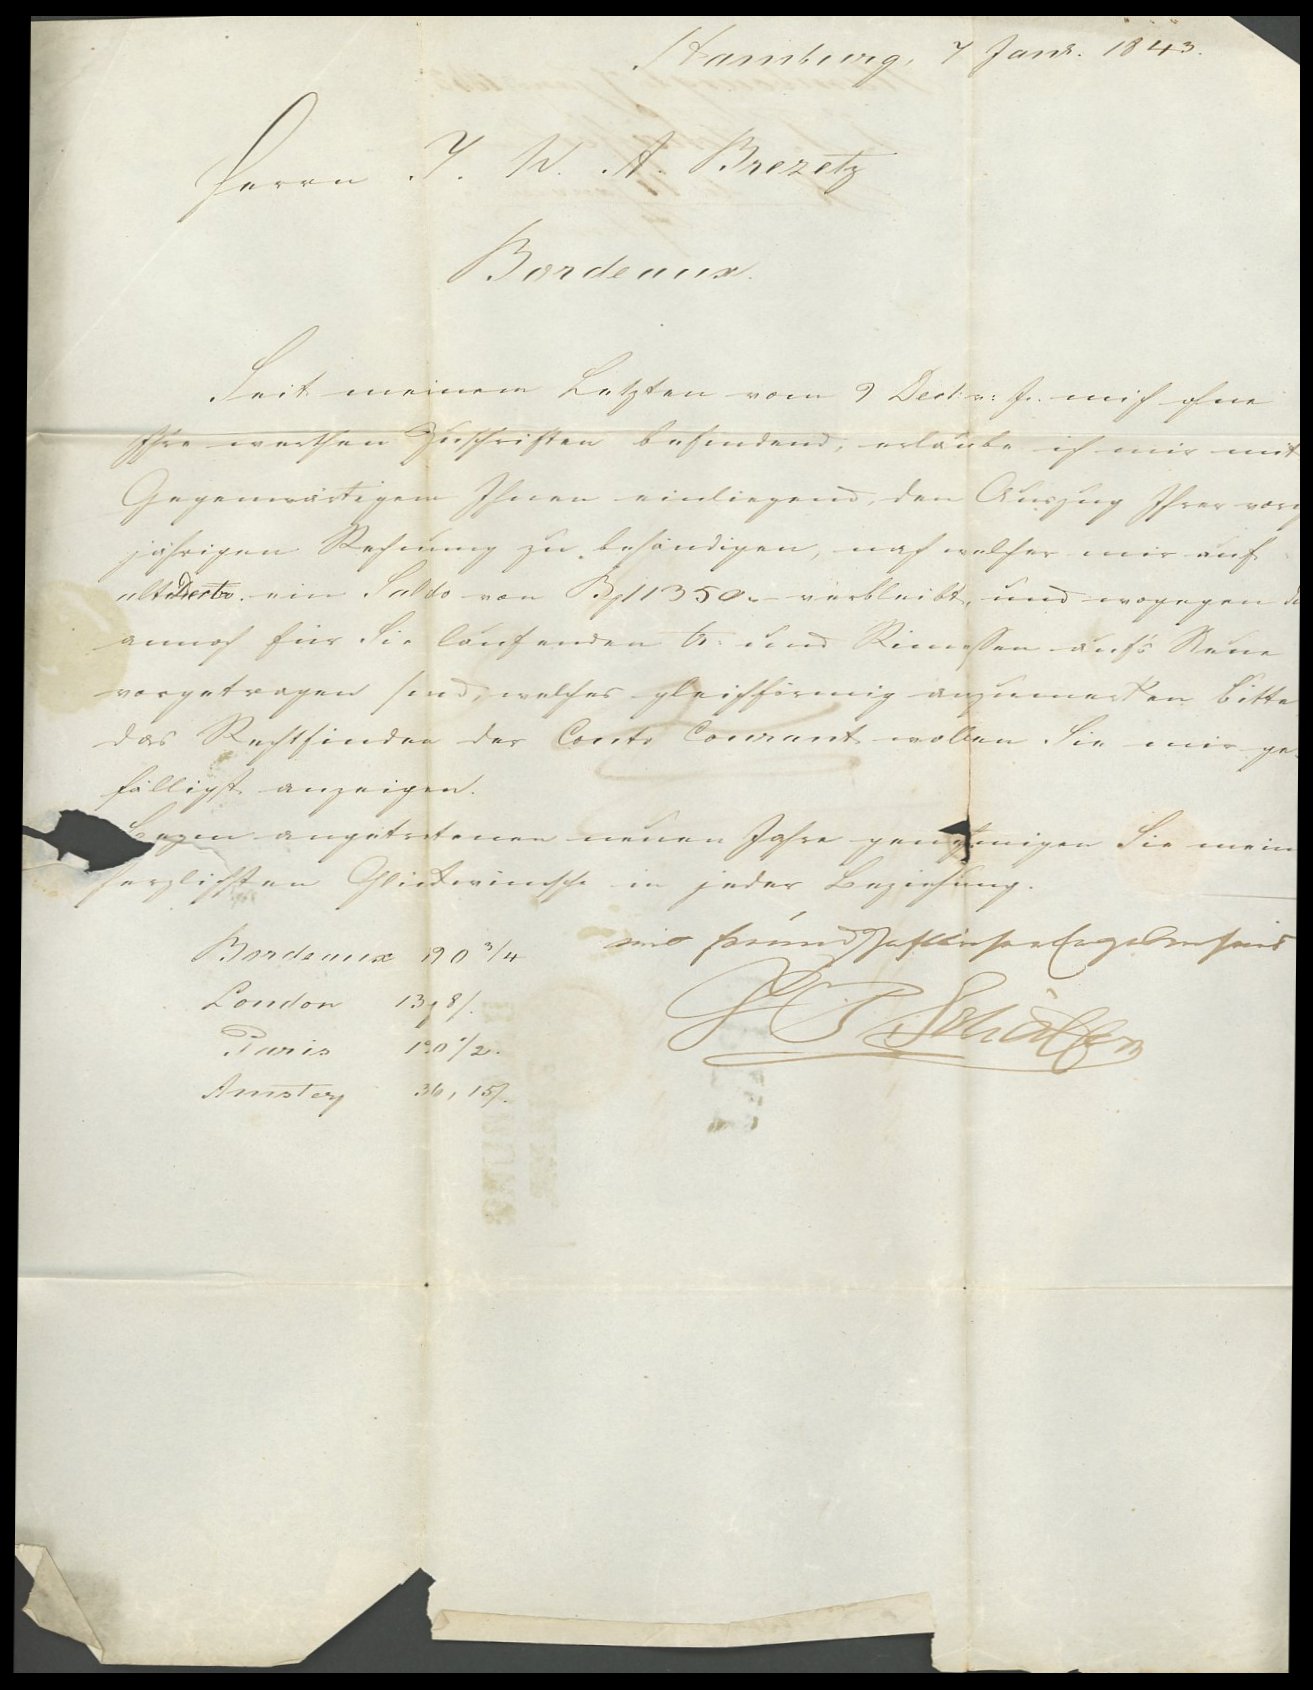 Hamburg, 7 Janr. 1843.
Herrn J. W. A. Brezetz
Bordeaux.
Seit meinem Letzten vom 9 Decbr v: J. mich ohne
Ihre werthen Zuschriften befindend, erlaube ich mir mit
Gegenwärtigem Ihnen einliegend, den Auszug Ihrer vor
jährigen Rechnung zu behändigen, nach welcher mir auf
ulto Decbr. ein Saldo von 1350 verbleibt, und wogegen
annoch für Sie laufenden und Rimessen auf's Neue
vorgetragen sind, welches gleichförmig anzumerken bitte
das Rechtfinden der Conto Courant wollen Sie mir ge-
fälligst anzeigen.
angetretenen neuen Jahre genehmigen Sie mein
herzlichsten Glückwünsche in jeder Beziehung.
mit freundschaftlicher Ergebenheit
Bordeaux 190 3/4
London 13, 8/.
Paris 190 1/2.
Amsterd 36, 15/.